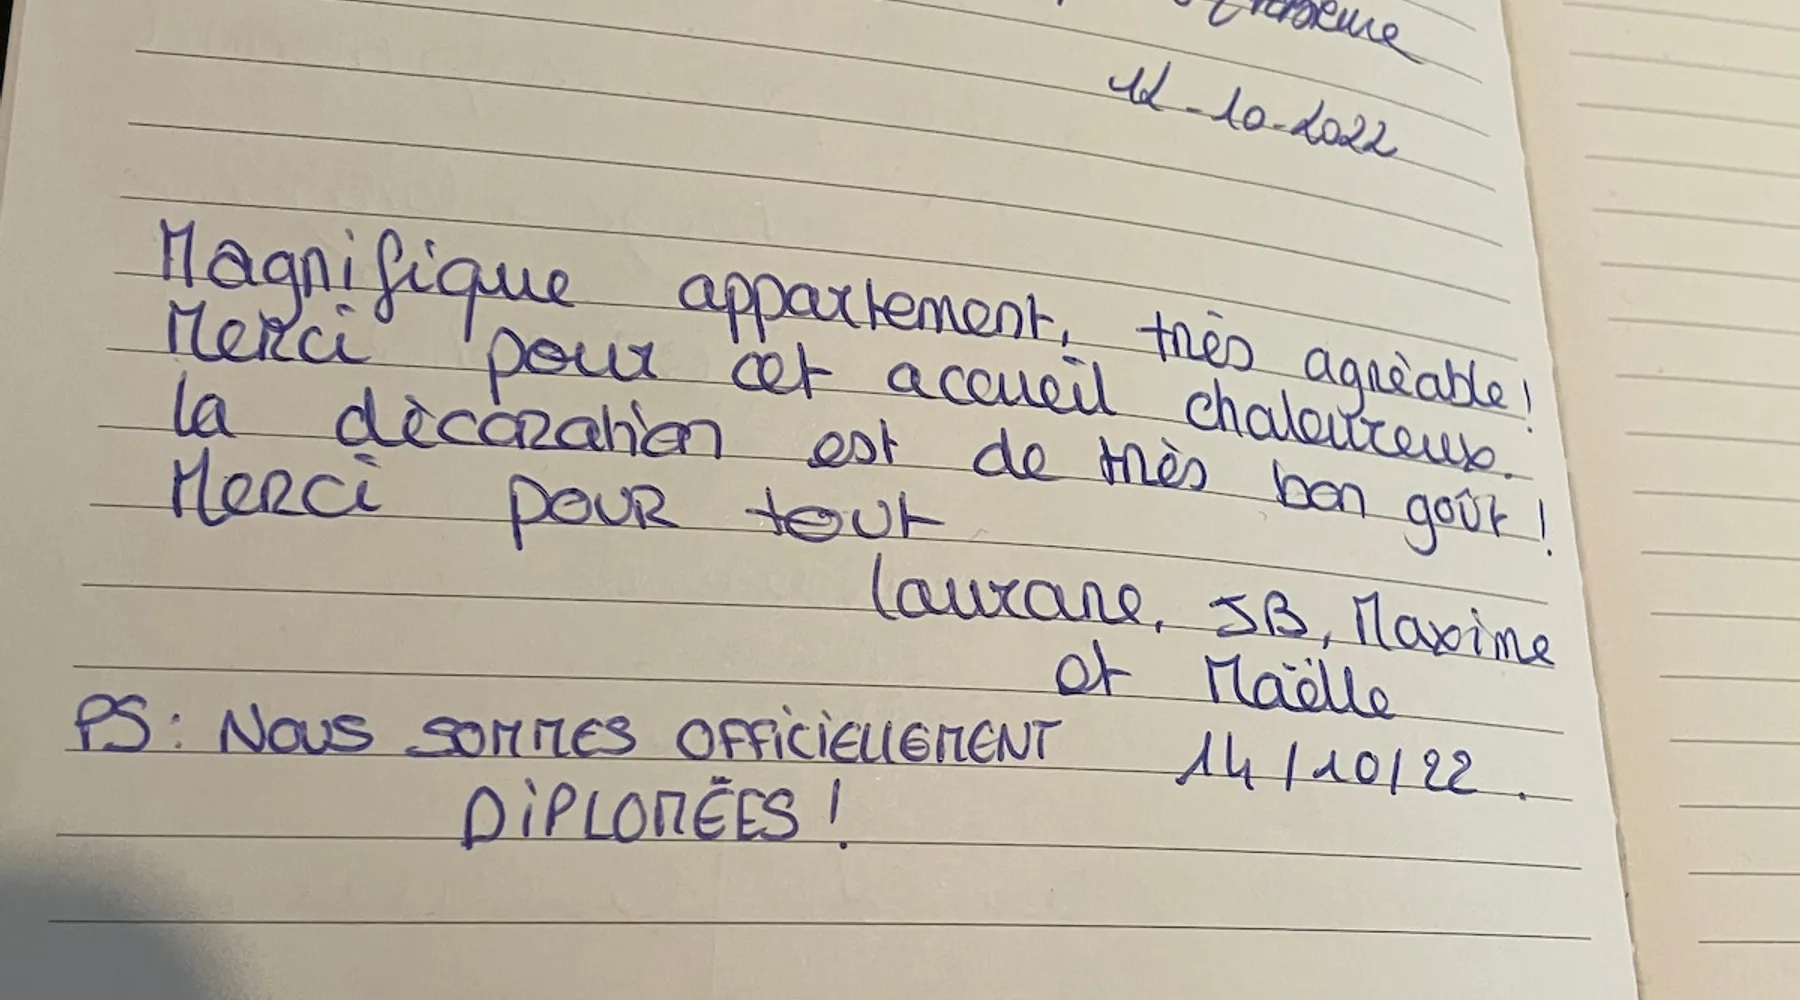 12-10-2022
Magnifique appartement, très agréable!
Merci pour cet accueil chaleureux.
la décoration est de très bon goût!
Merci pour tout
Laurane, JB, Maxime
et Maëlle
PS: Nous sommes officiellement 14/10/22.
DiPLOMÉES!